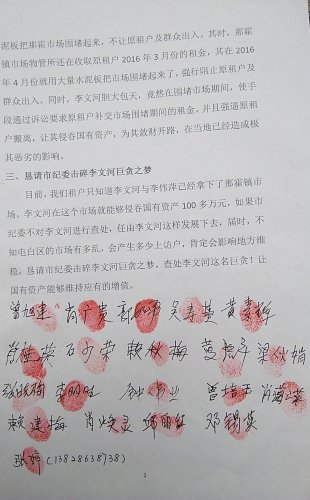 泥板把那霍市场围堵起来，不让原租户及群众出入。其时，那霍
镇市场物管所还在收取原租户 2016 年 3 月份的租金，其在 2016
年 4 月份就用大量水泥板把市场围堵起来了，强行阻止原租户及
群众出入。同时，李文河胆大包天，竟然在围堵市场期间，使手
段通过诉讼要求原租户补交市场围堵期间的租金，并且强逼原租
户搬离，让其侵吞国有资产，为其敛财开路，在当地已经造成极
其恶劣的影响。
三、恳请市纪委击碎李文河巨贪之梦
目前，我们租户只知道李文河与李伟萍已经拿下了那霍镇市
场，李文河在这个市场就能够侵吞国有资产 100 多万元，如果市
纪委不对李文河进行查处，任由李文河这样发展下去，届时，不
知电白区的市场有多乱，会产生多少上访户，肯定会影响地方维
稳。恳请市纪委击碎李文河巨贪之梦，查处李文河这名巨贪！让
国有资产能够维持应有的增值。
曾旭建 肖广贵 吴寿基 黄贵梅
石少荣 赖仪梅 梁仪娟
李明旺 曾培玉
赖建梅 肖焕灵 邱丽红 邓锡英
(13828638738)
2